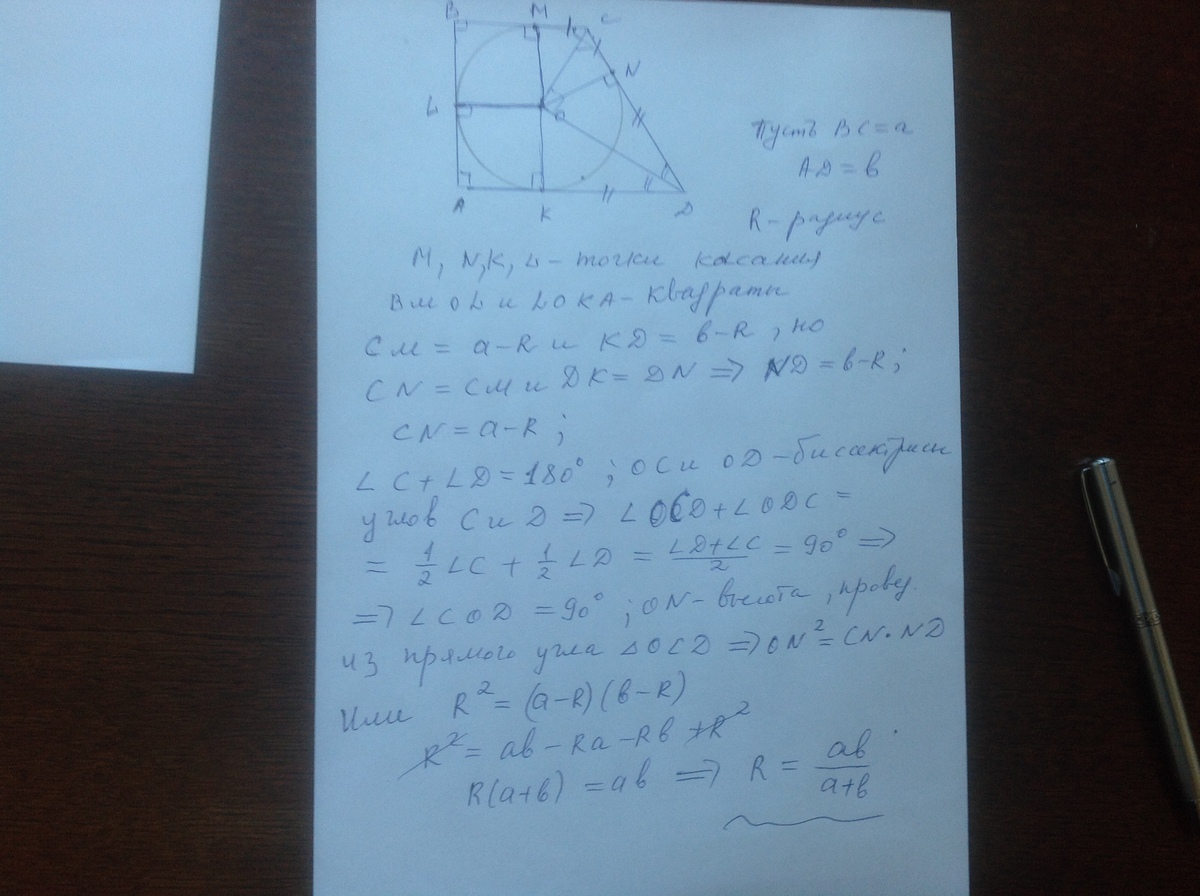 B M C
N
L O
A K D
Пусть BC = a
AD = b
R - радиус
M, N, K, L - точки касания
BMOL и LOKA - квадраты
CM = a-R и KD = b-R, но
CN = CM и DK = DN => ND = b-R;
CN = a-R;
∠C+∠D=180°; OC и OD - биссектрисы
углов C и D => ∠OCD+∠ODC =
= 1/2 ∠C + 1/2 ∠D = (∠D+∠C)/2 = 90° =>
=> ∠COD = 90°; ON - высота, провед.
из прямого угла △OCD => ON² = CN·ND
Или R² = (a-R)(b-R)
R² = ab - Ra - Rb + R²
R(a+b) = ab => R = ab/(a+b)